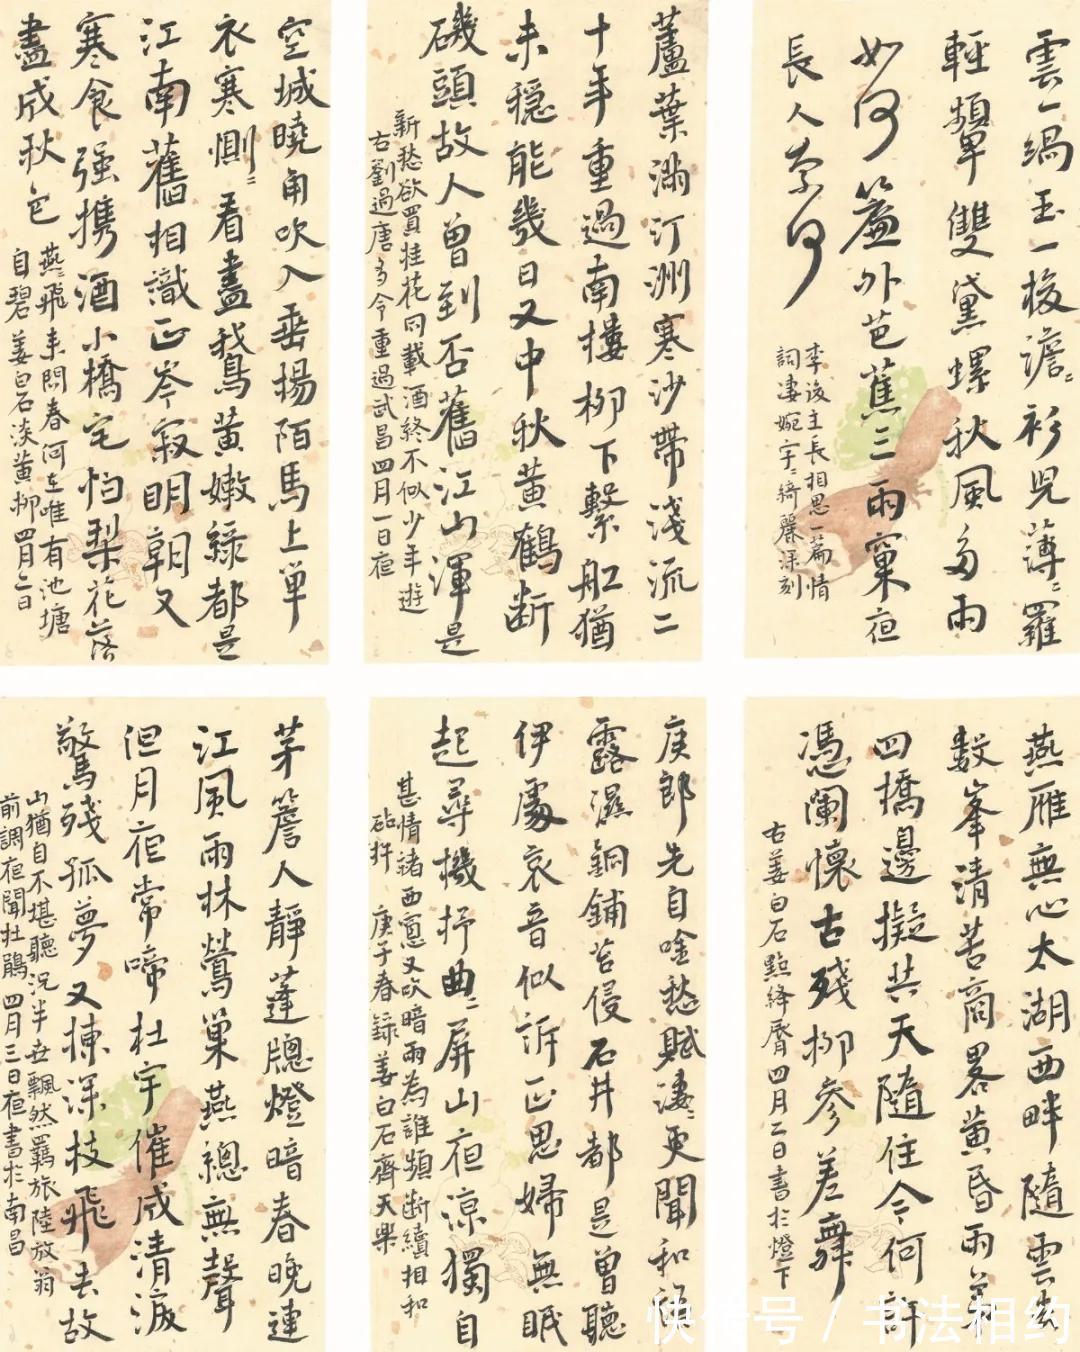 雲一緺玉一梭澹﹦衫兒薄﹦羅
輕顰雙黛螺秋風多雨
如何簾外芭蕉三兩窠夜
長人奈何
李後主長相思一篇情
詞淒婉字﹦綺麗深刻
蘆葉滿汀洲寒沙帶淺流二
十年重過南樓柳下繫舡猶
未穩能幾日又中秋黃鶴斷
磯頭故人曾到否舊江山渾是
新愁欲買桂花同載酒終不似少年遊
右劉過唐多令重過武昌四月一日夜
空城曉角吹入垂楊陌馬上單
衣寒惻﹦看盡鵝黃嫩綠都是
江南舊相識正岑寂明朝又
寒食强携酒小橋宅怕梨花落
盡成秋色
燕﹦飛來問春何在唯有池塘
自碧姜白石淡黃柳四月二日
燕雁無心太湖西畔隨雲去
數峯清苦商畧黃昏雨第
四橋邊擬共天隨住今何許
憑闌懷古殘柳參差舞
右姜白石點絳脣四月二日書於燈下
庾郎先自吟愁賦淒﹦更聞私語
露濕銅鋪苔侵石井都是曾聽
伊處哀音似訴正思婦無眠
起尋機杼曲﹦屏山夜涼獨自
甚情緒西窗又吹暗雨為誰頻斷續相和
砧杵 庚子春錄姜白石齊天樂
茅簷人靜蓬牕燈暗春晚連
江風雨林鶯巢燕總無聲
但月夜常啼杜宇催成清淚
驚殘孤夢又揀深枝飛去故
山猶自不堪聽況半世飄然羈旅陸放翁
前調夜聞杜鵑四月三日夜書於南昌
快传号 / 书法相约